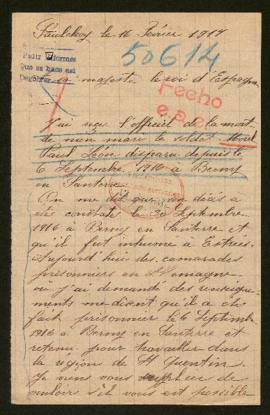 le 16 Février 1917
50614
Pedir informes
Fecho
sa majesté le roi d'Espagne
J'ai reçu l'officiel de la mort
de mon mari le soldat
Paul Léon disparu depuis le
6 Septembre 1916 à Berny
en Santerre
On me dit que son décès a
été constaté le 20 Septembre
1916 à Berny en Santerre et
qu'il fut inhumé à Estrées.
Aujourd'hui des camarades
prisonniers en Allemagne
où j'ai demandé des renseigne-
ments me disent qu'il a été
fait prisonnier le 6 Septembre
1916 à Berny en Santerre et
retenu pour travailler dans
la région de St Quentin.
Je viens vous de
vouloir s'il vous est possible